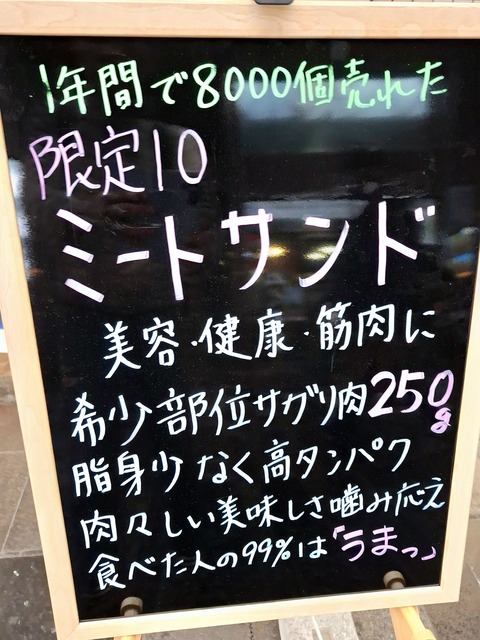 1年間で8000個売れた
限定10
ミートサンド
美容・健康・筋肉に
希少部位サガリ肉250g
脂身少なく高タンパク
肉々しい美味しさ噛み応え
食べた人の99%は「うまっ」